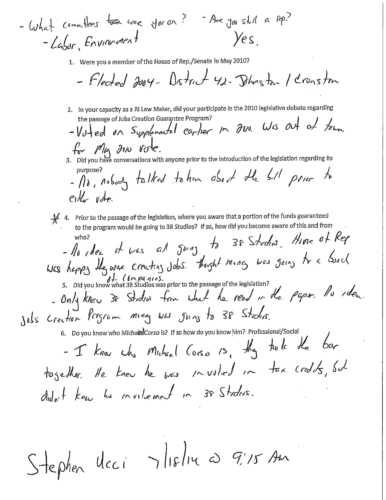 - What committees were you on? - Are you still a rep?
- Labor, Environment Yes.
1. Were you a member of the House of Rep./Senate in May 2010?
- Elected 2004 - District 42 - Johnston / Cranston
2. In your capacity as a RI Law Maker, did your participate in the 2010 legislative debate regarding
the passage of Jobs Creation Guarantee Program?
- Voted on Supplemental earlier in 2010. Was out of town
for May 2010 vote.
3. Did you have conversations with anyone prior to the introduction of the legislation regarding its
purpose?
- No, nobody talked to him about the bill prior to
either vote.
4. Prior to the passage of the legislation, where you aware that a portion of the funds guaranteed
to the program would be going to 38 Studios? If so, how did you become aware of this and from
who?
- No idea it was all going to 38 Studios. House of Rep
was happy they were creating jobs. Thought money was going to a bunch
of companies.
5. Did you know what 38 Studios was prior to the passage of the legislation?
- Only knew 38 Studios from what he read in the paper. No idea
Jobs Creation Program money was going to 38 Studios.
6. Do you know who Michael Corso is? If so how do you know him? Professional/Social
- I know who Michael Corso is, they took the bar
together. He knew he was involved in tax credits, but
didn't know his involvement in 38 Studios.
Stephen Ucci 7/15/14 @ 9:15 AM